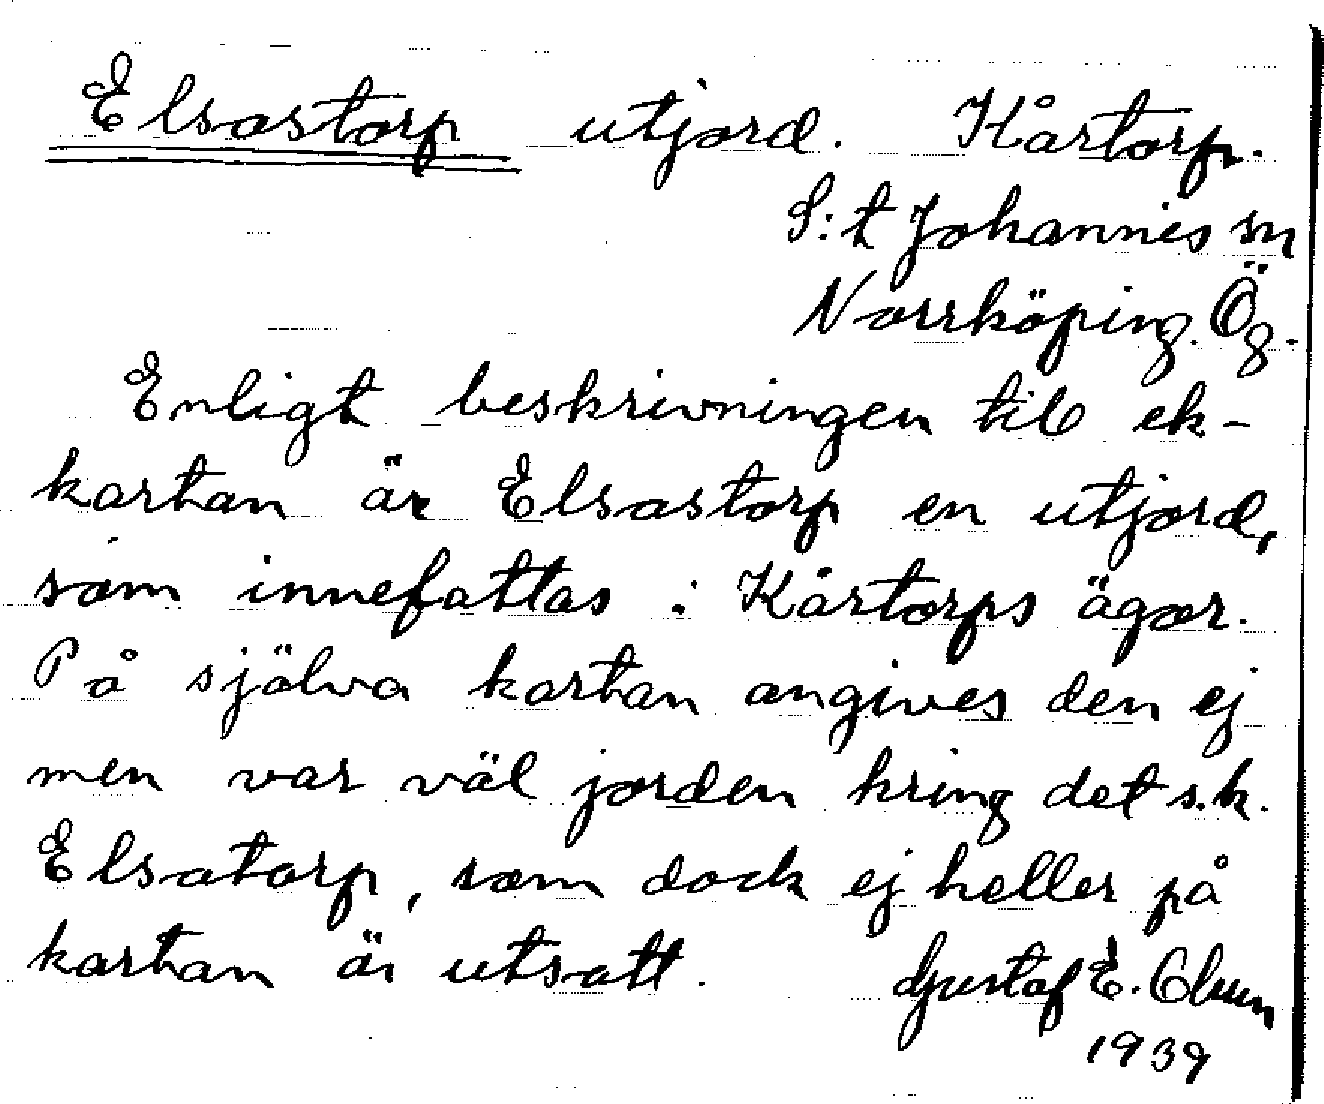 Elsastorp utjord. Kårtorp.
S:t Johannis sn
Norrköping. Ög.
Enligt beskrivningen till ek-
kartan är Elsastorp en utjord,
som innefattas i Kårtorps ägor.
På själva kartan angives den ej
men var väl jorden kring det s.k.
Elsatorp, som dock ej heller på
kartan är utsatt. Gustaf E. Olsson
1939